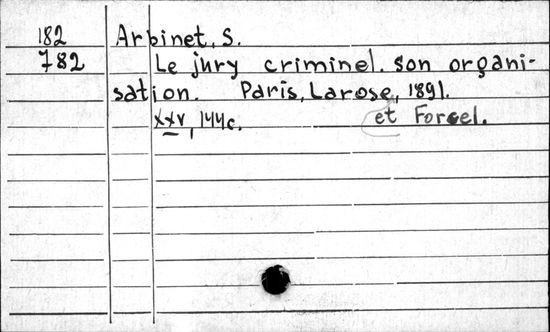 182 Arbinet, S.
782 Le jury criminel. Son organi-
sation. Paris, Larose, 1891.
xxv, 144c. et Forcel.